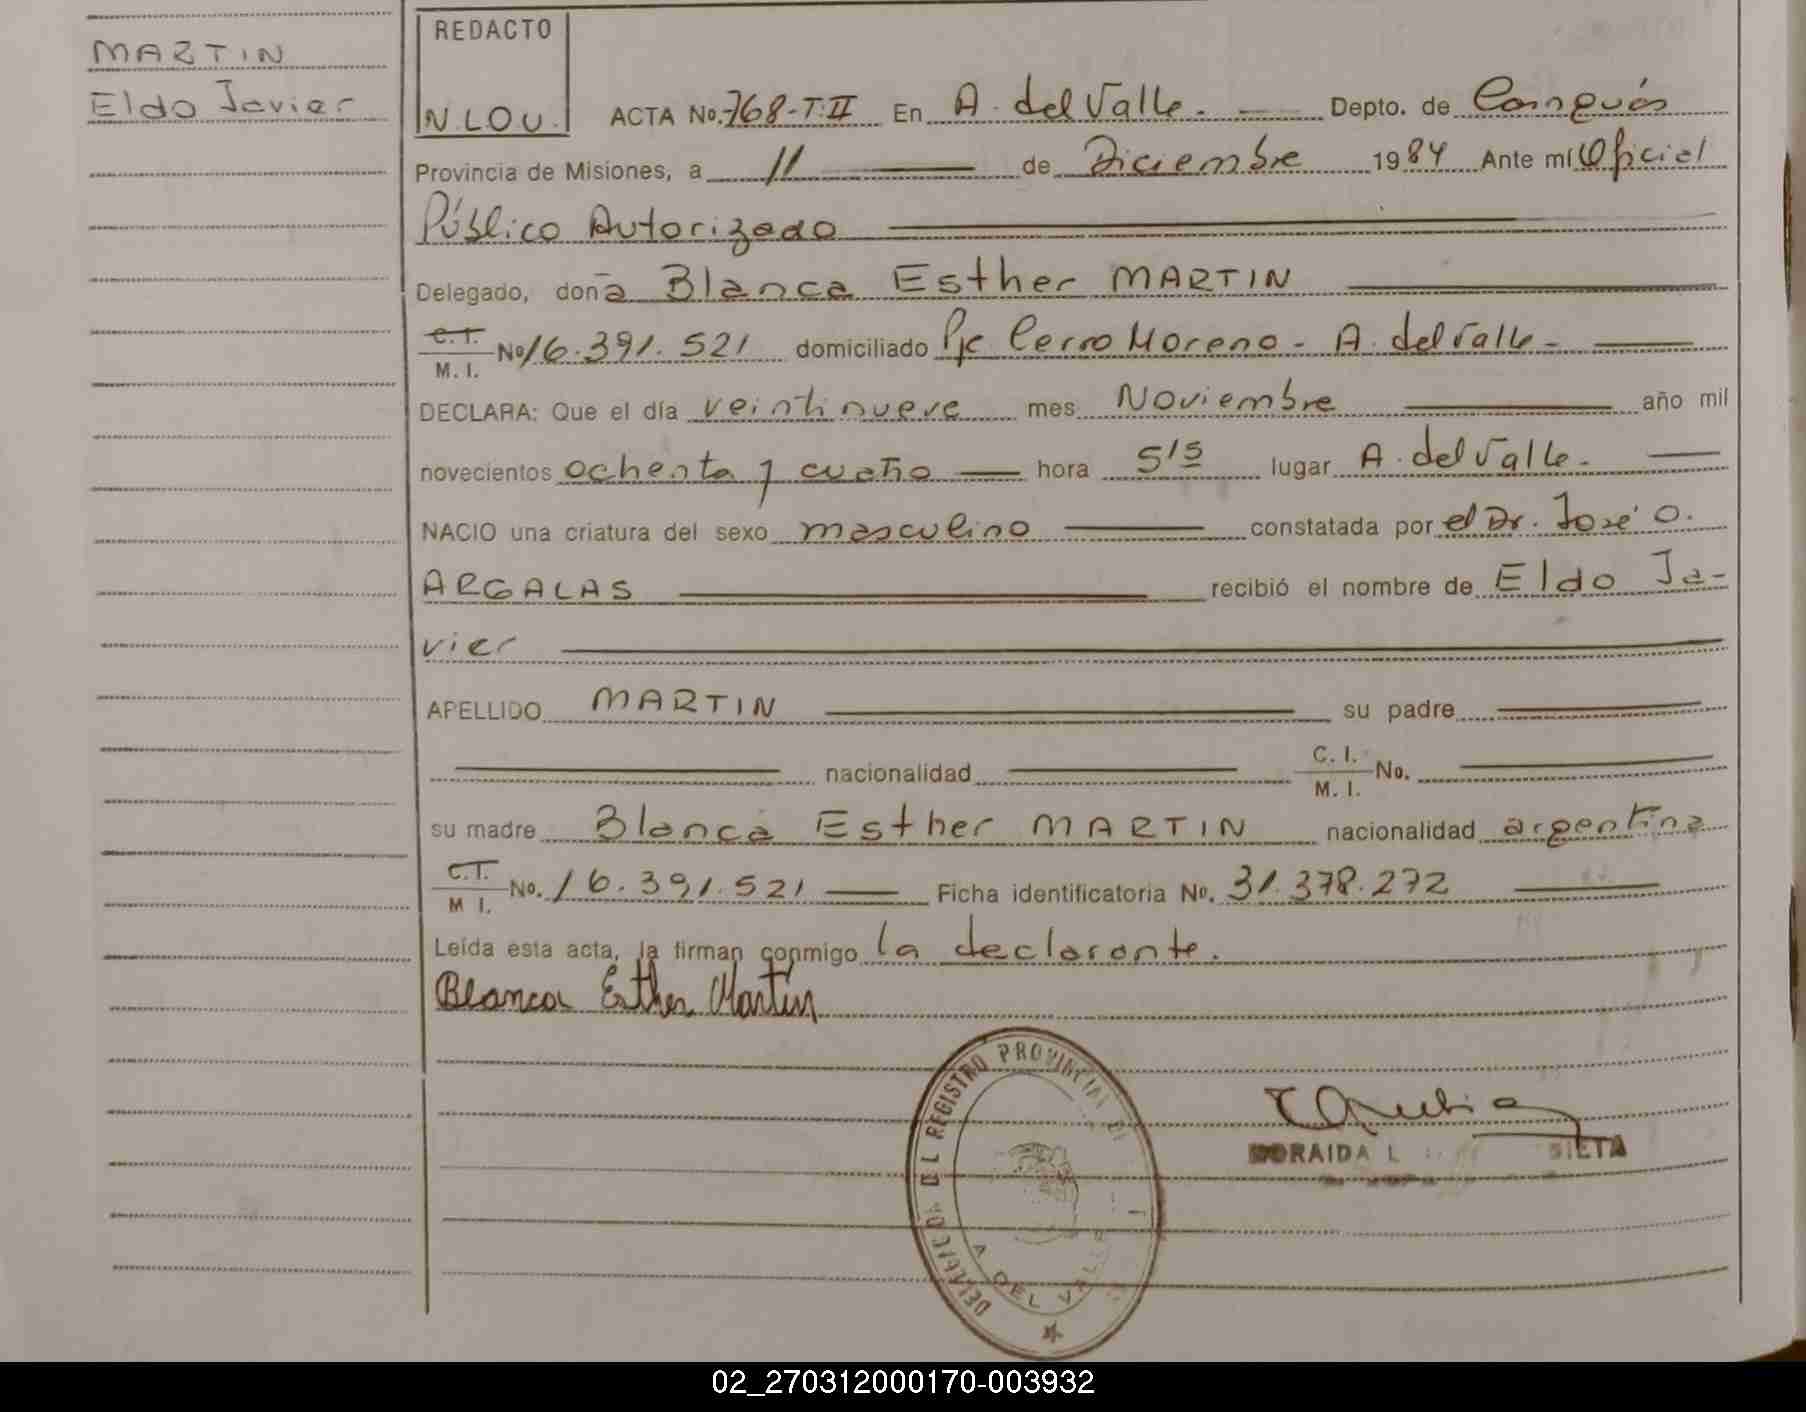 MARTIN
Eldo Javier
REDACTO
N.LOU.
ACTA No. 768-T:II En A. del Valle. Depto. de Cainguás
Provincia de Misiones, a 11 de Diciembre 1984 Ante mí Oficial
Público Autorizado
Delegado, doña Blanca Esther MARTIN
C.I.
M. I. No 16.391.521 domiciliado Pje Cerro Moreno - A. del Valle -
DECLARA: Que el día veintinueve mes Noviembre año mil
novecientos ochenta y cuatro hora 515 lugar A. del Valle.
NACIO una criatura del sexo masculino constatada por el Dr. José O.
ARGALAS recibió el nombre de Eldo Ja-
vier
APELLIDO MARTIN su padre
nacionalidad C. I.
M. I. No.
su madre Blanca Esther MARTIN nacionalidad argentina
C.I.
M I. No. 16.391.521 Ficha identificatoria No. 31.378.272
Leída esta acta, la firman conmigo la declarante.
Blanca Esther Martin
DEL REGISTRO PROVINCIAL DE
A. DEL VALLE
DORAIDA L
02_270312000170-003932